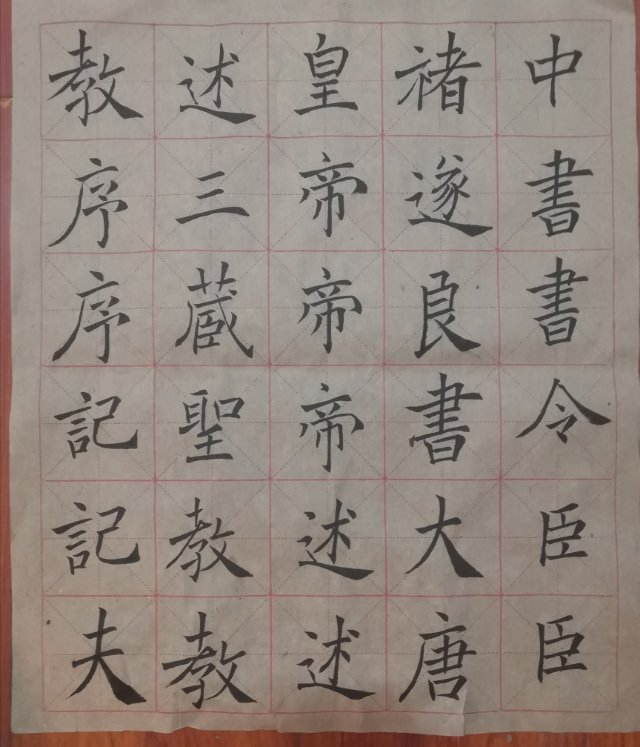 中書書令臣臣
褚遂良書大唐
皇帝帝帝述述
述三蔵聖教教
教序序記記夫